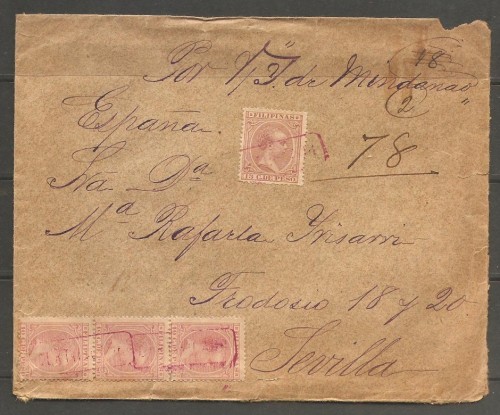 18
Por V/ "Y. de Mindanao"
2
España.
FILIPINAS
15 C. DE PESO
78
Sra. Da
Ma Rafaela Yrisarri
Teodosio 18 y 20
Sevilla